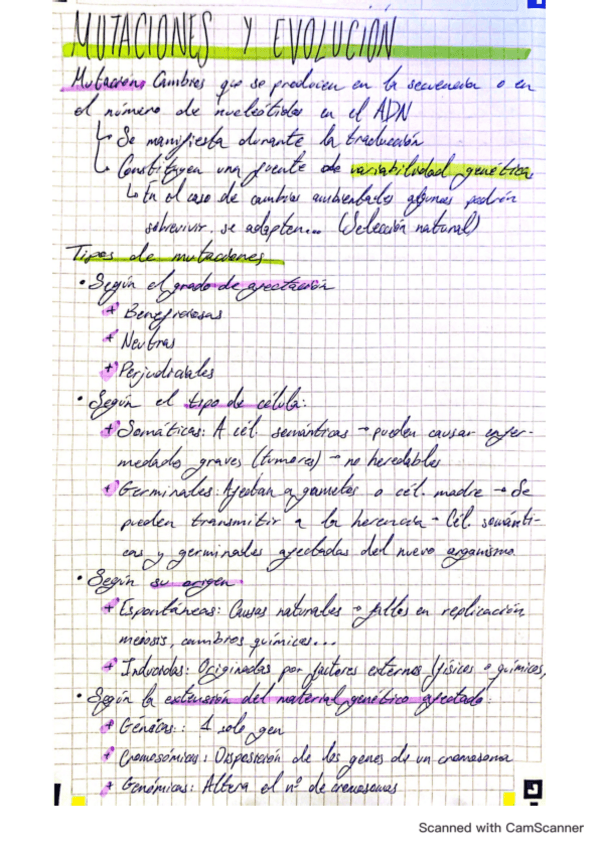 MUTACIONES Y EVOLUCIÓN
Mutación: Cambios que se producen en la secuencia o en
el número de nucleótidos en el ADN
↳ Se manifiesta durante la traducción
↳ Constituyen una fuente de variabilidad genética
↳ En el caso de cambios ambientales algunas podrán
sobrevivir, se adapten... (Selección natural)
Tipos de mutaciones
• Según el grado de afectación
+ Beneficiosas
+ Neutras
+ Perjudiciales
• Según el tipo de célula:
+ Somáticas: A cél. semánticas → pueden causar enfer-
medades graves (tumores) → no heredables
+ Germinales: Afectan a gametos o cél. madre → Se
pueden transmitir a la herencia → Cél. semánti-
cas y germinales afectadas del nuevo organismo
• Según su origen
+ Espontáneas: Causas naturales → fallos en replicación
meiosis, cambios químicos...
+ Inducidas: Originadas por factores externos (físicos o químicos,
• Según la extensión del material genético afectado:
+ Génicas: 1 solo gen
+ Cromosómicas: Disposición de los genes de un cromosoma
+ Genómicas: Altera el nº de cromosomas
Scanned with CamScanner